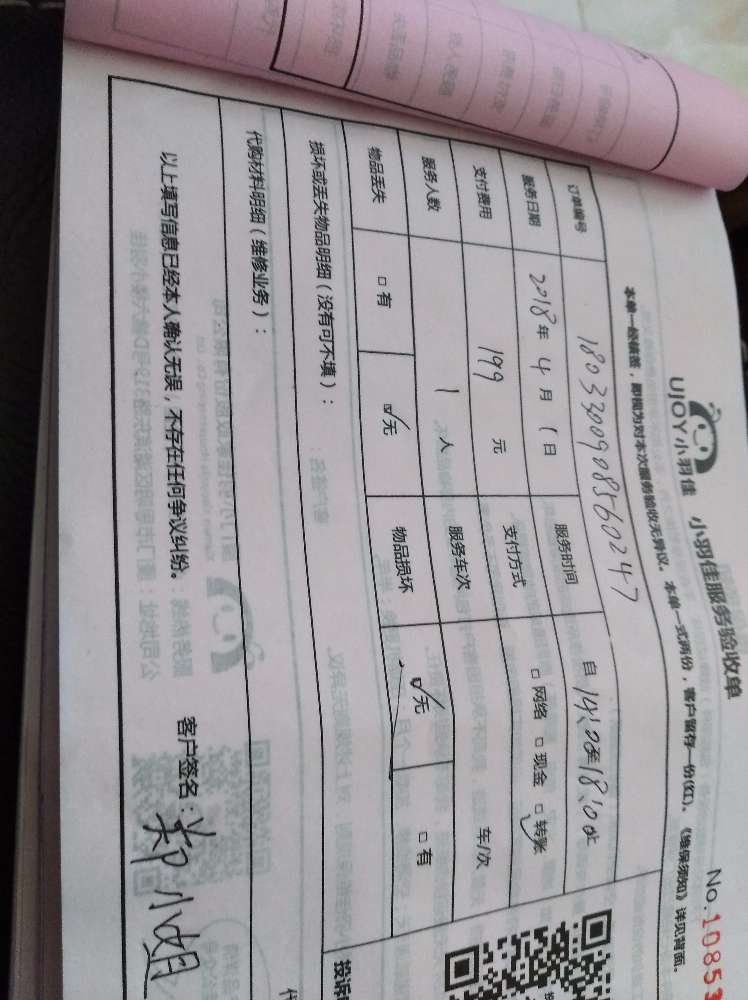 UJOY小羽佳 小羽佳服务验收单
No.10853
本单一经填签，即视为对本次服务验收无异议。本单一式两份，客户留存一份(红)。《维保须知》详见背面。
订单编号 180330090856024 7
服务日期 2018年4月1日 服务时间 自14:00至18:00止
支付费用 199元 支付方式 □网络 □现金 □转账
服务人数 1人 服务车次 车/次
物品丢失 □有 ☑无 物品损坏 ☑无 □有
损坏或丢失物品明细（没有可不填）：
代购材料明细（维修业务）：
以上填写信息已经本人确认无误，不存在任何争议纠纷。
客户签名：郑小姐
投诉